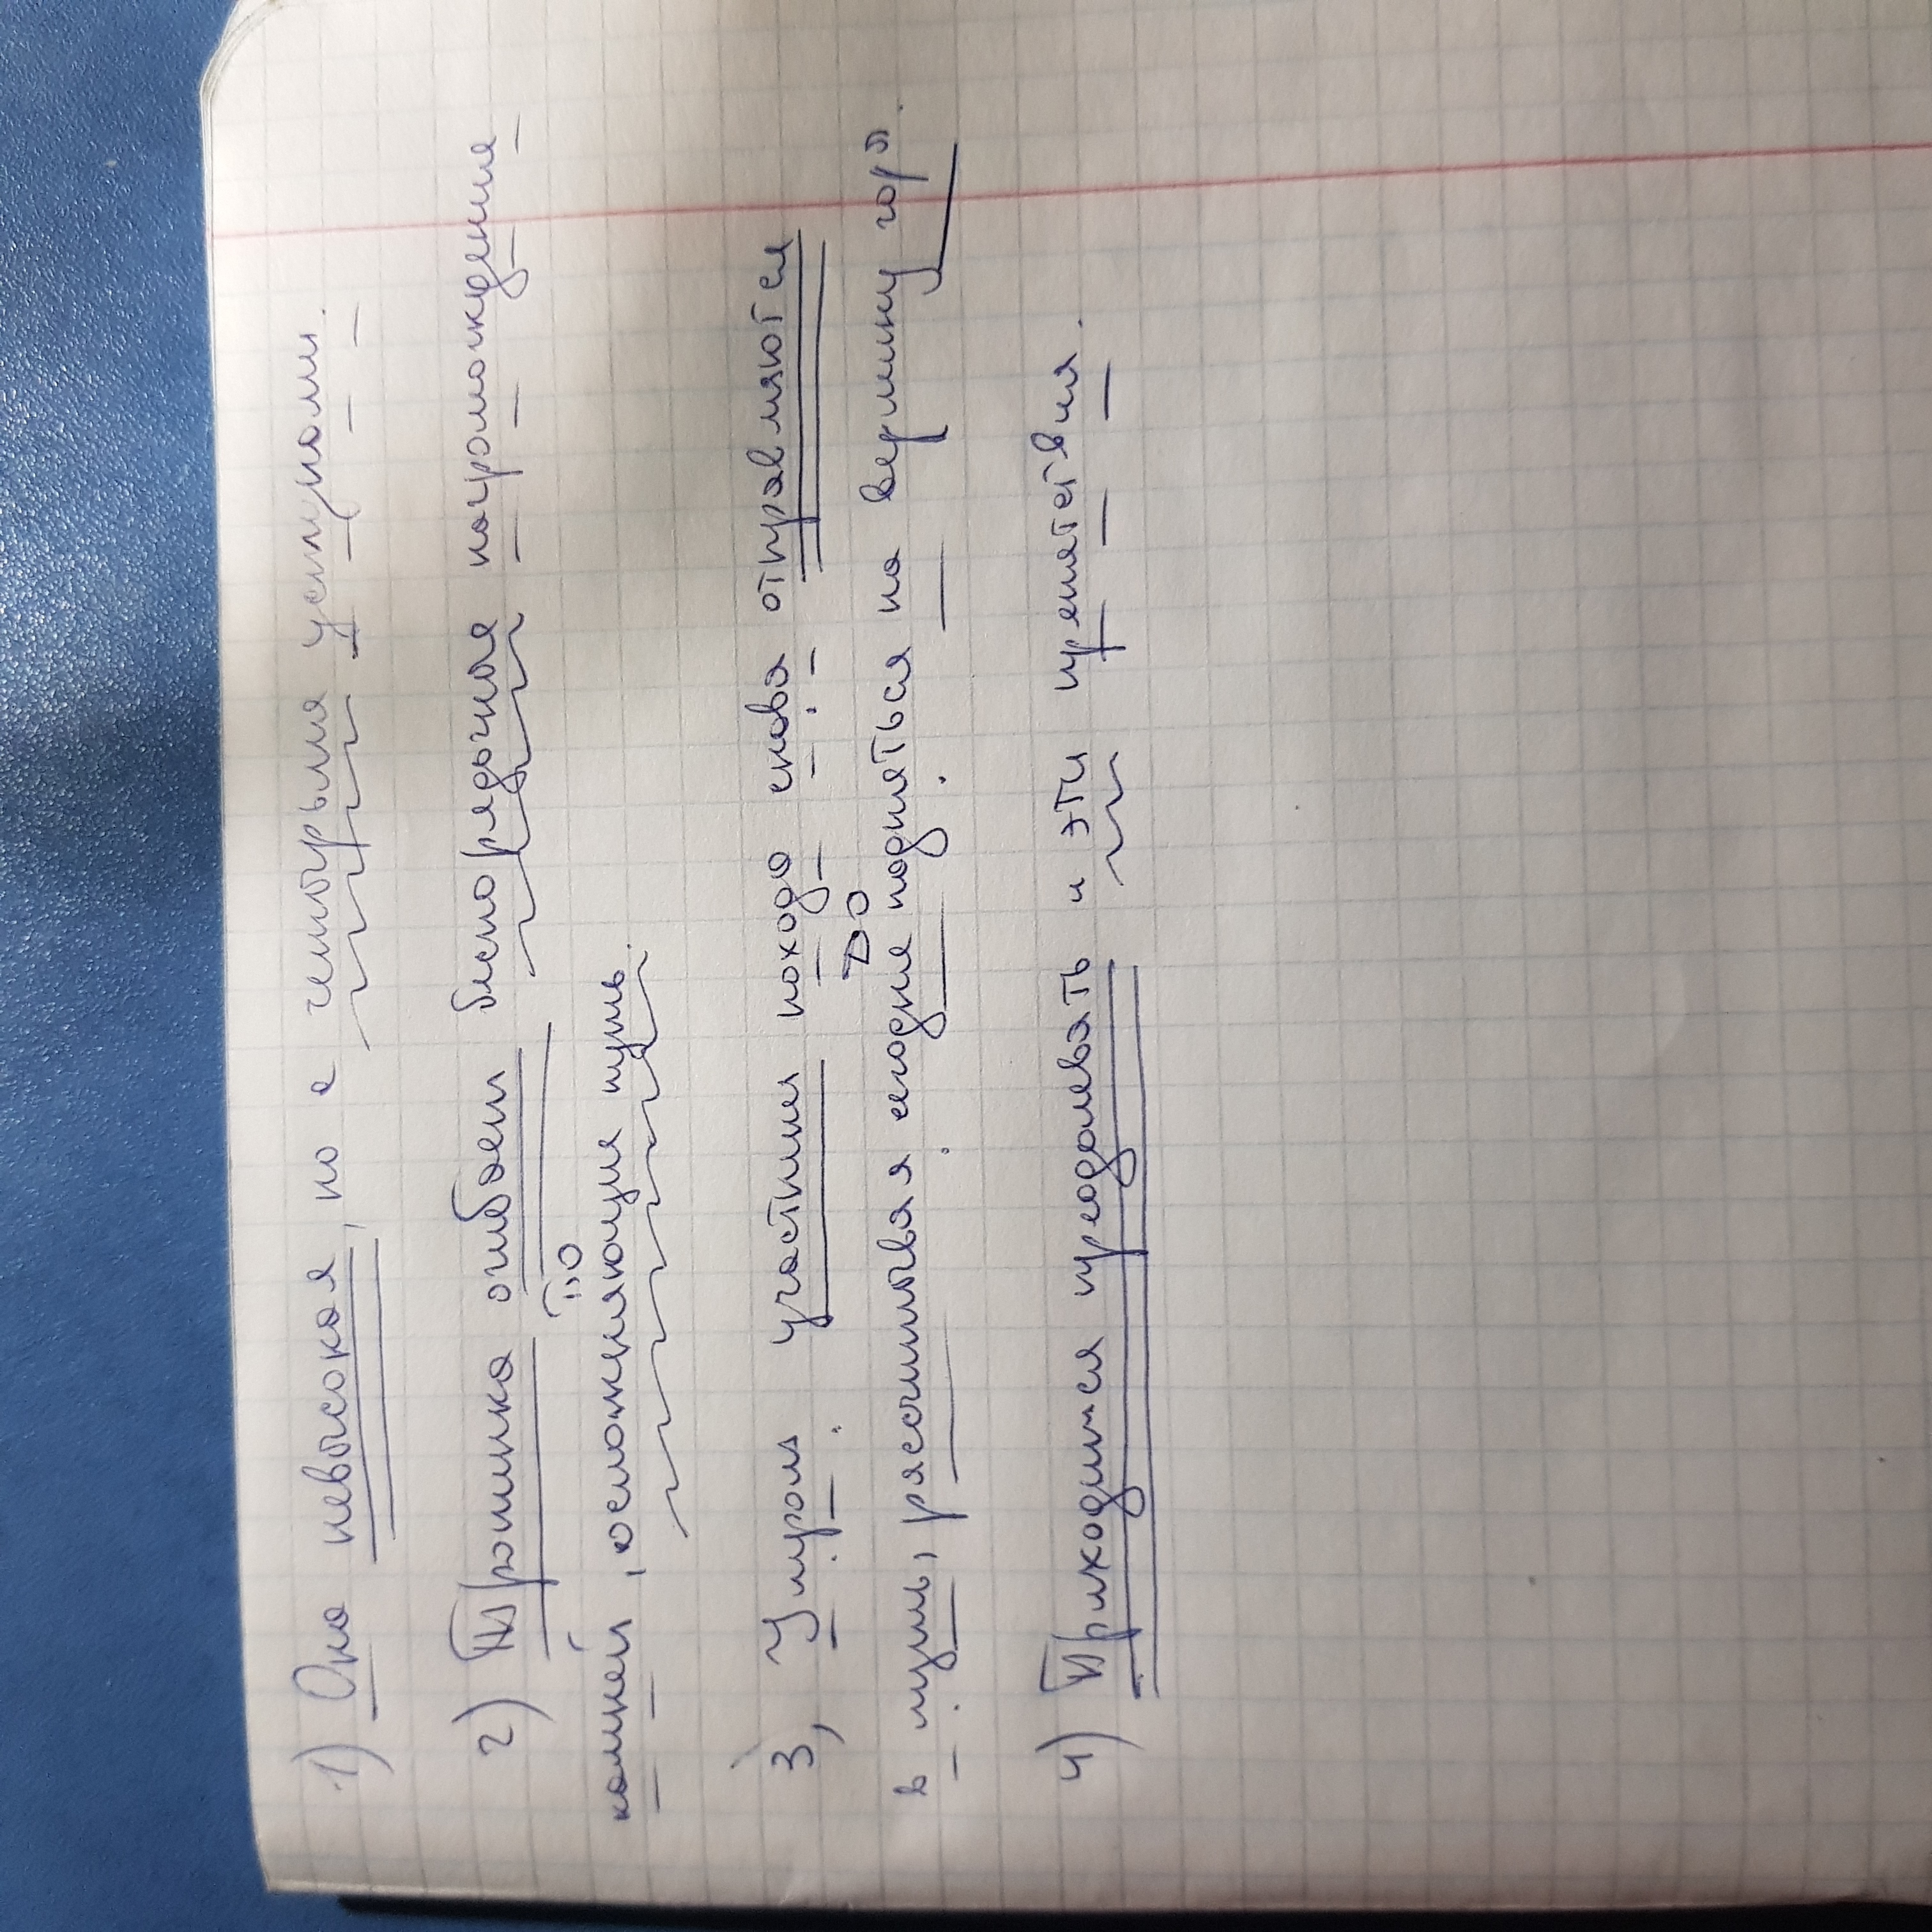 1) Она невысокая, но с четырьмя уступами.
2) Тропинка огибает беспорядочная нагромождения
П,О
камней, осложняющие путь.
3) Утром участники похода снова отправляются
ДО
в путь, рассчитывая сегодня подняться на вершину горы.
4) Приходится преодолевать и эти препятствия.